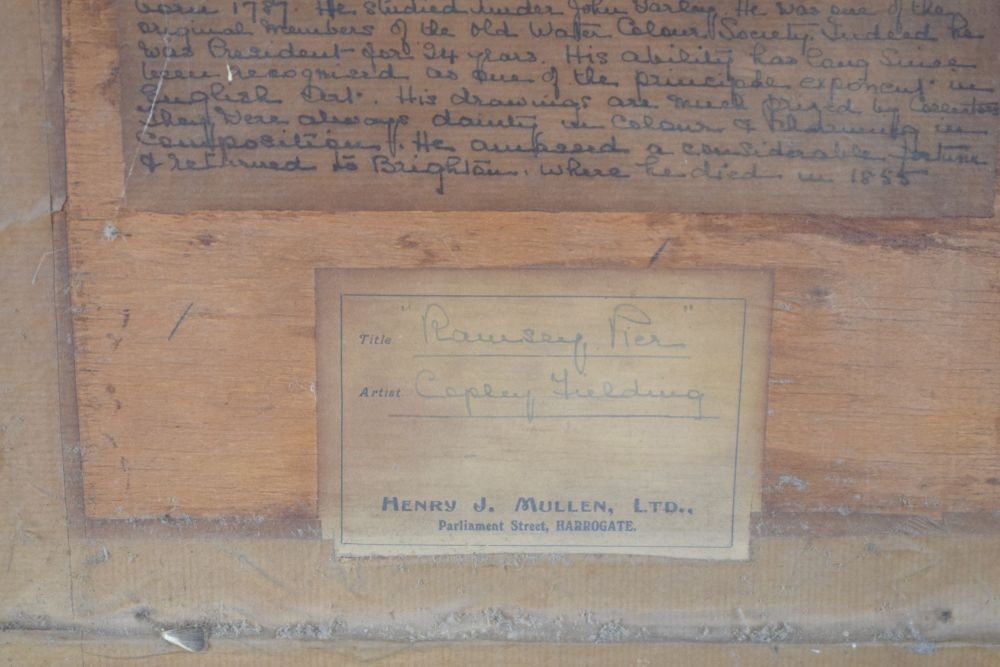 born 1787. He studied under John Varley. He was one of the
original members of the Old Water Colour Society. Indeed he
was President for 24 years. His ability has long since
been recognised as one of the principle exponent in
English Art. His drawings are much prized by Collectors
They were always dainty in colour & charming in
composition. He amassed a considerable fortune
& returned to Brighton. where he died in 1855
Title "Ramsey Pier"
Artist Copley Fielding
HENRY J. MULLEN, LTD.,
Parliament Street, HARROGATE.